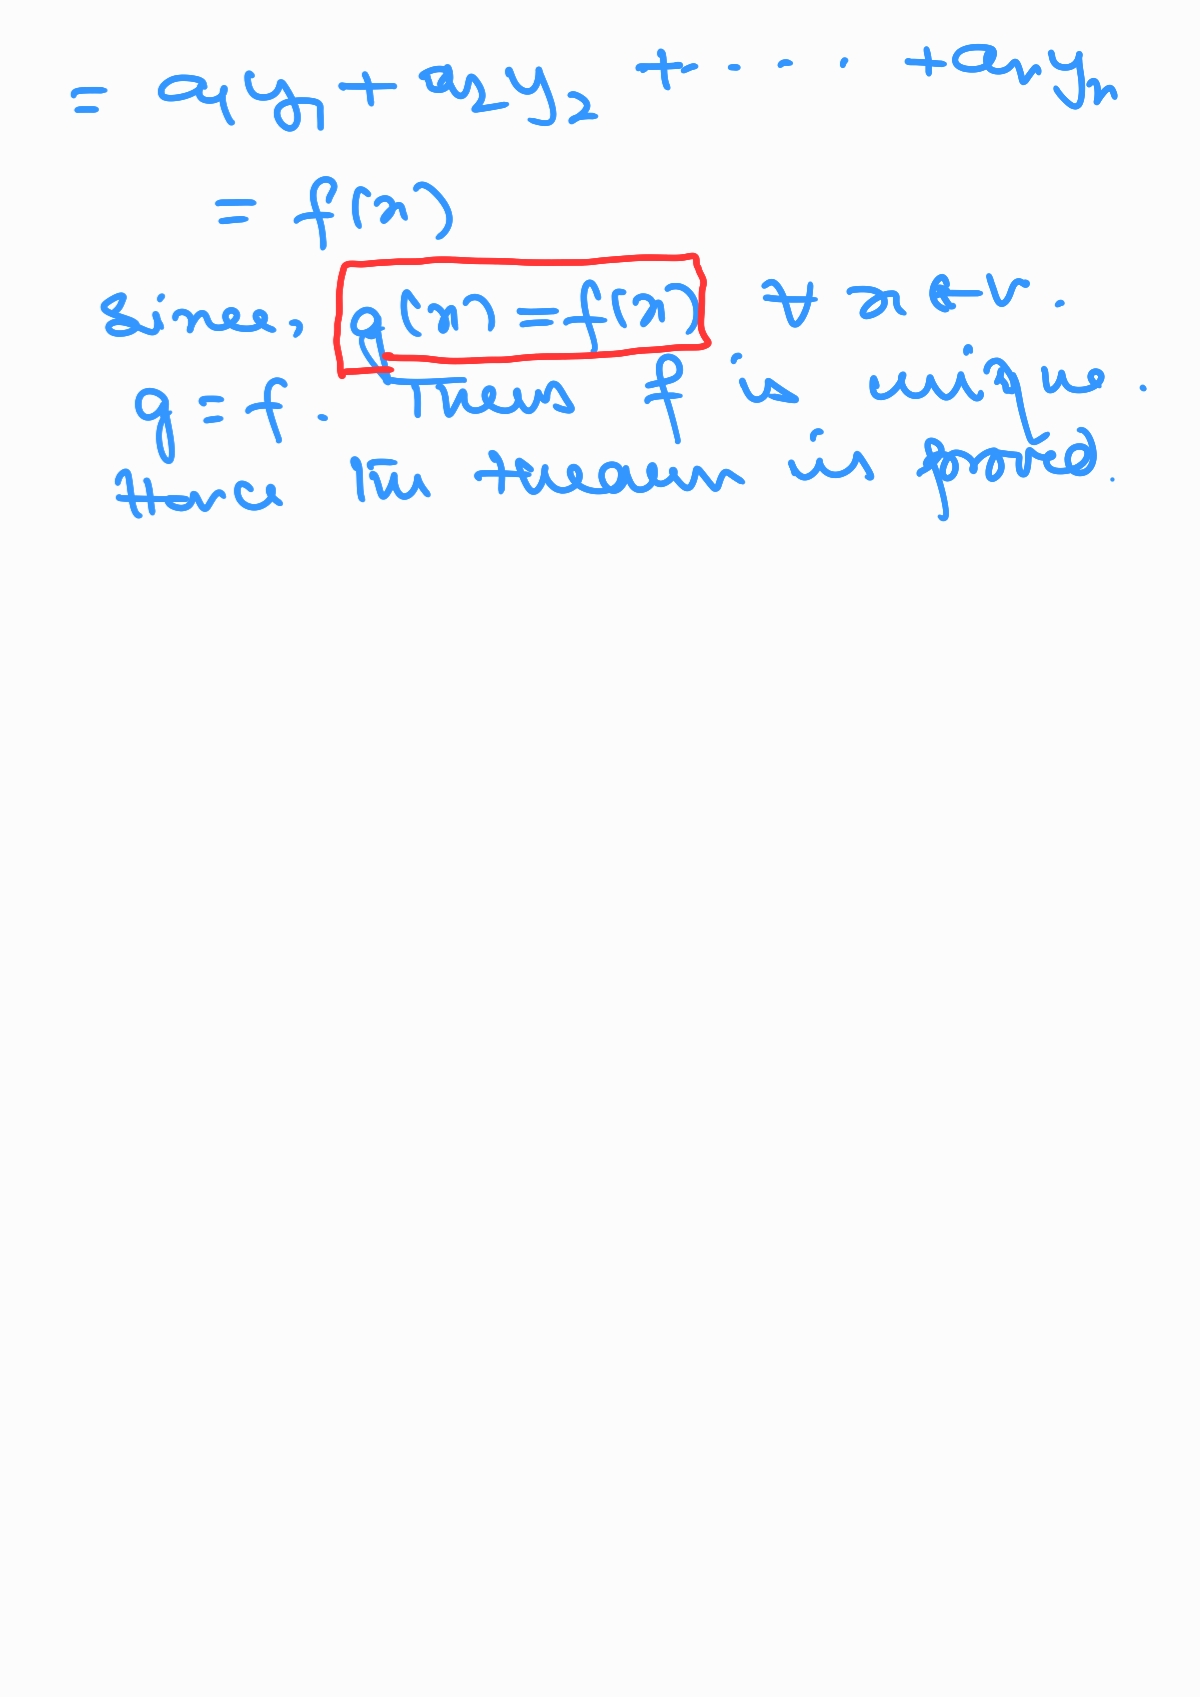 = a₁y₁ + a₂y₂ + . . . . + aₙyₙ
= f(x)
Since, g(x) = f(x) ∀ x ∈ V.
g = f. Thus f is unique.
Hence the theorem is proved.